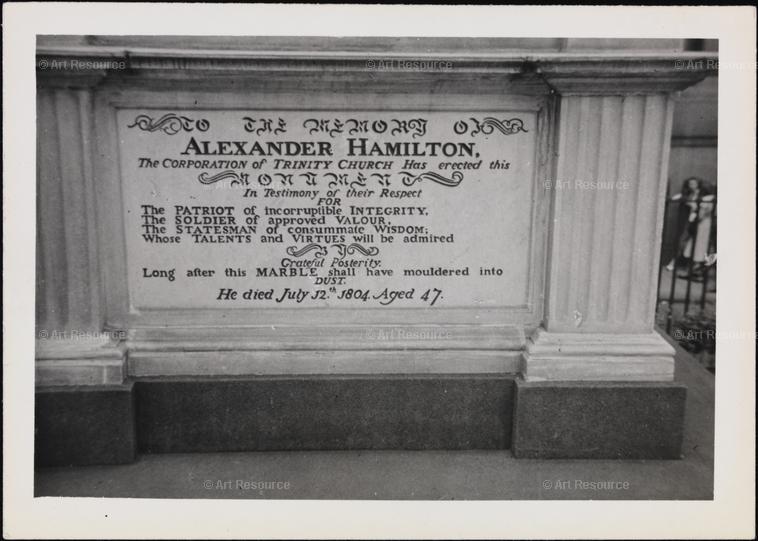 © Art Resource © Art Resource © Art Resource
TO THE MEMORY OF
ALEXANDER HAMILTON,
The CORPORATION of TRINITY CHURCH Has erected this
MONUMENT
In Testimony of their Respect
FOR
The PATRIOT of incorruptible INTEGRITY,
The SOLDIER of approved VALOUR,
The STATESMAN of consummate WISDOM;
Whose TALENTS and VIRTUES will be admired
BY
Grateful Posterity.
Long after this MARBLE shall have mouldered into
DUST.
He died July 12.th 1804. Aged 47.
© Art Resource © Art Resource
© Art Resource © Art Resource © Art Resource
© Art Resource © Art Resource